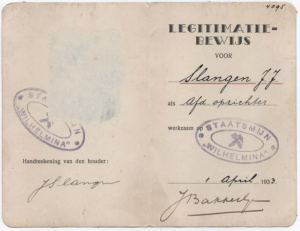 4095
LEGITIMATIE-
BEWIJS
VOOR
Slangen JJ
als Afd opzichter
werkzaam op STAATSMIJN
„WILHELMINA"
1 April 1933
STAATSMIJN
„WILHELMINA"
Handteekening van den houder:
JSlangen